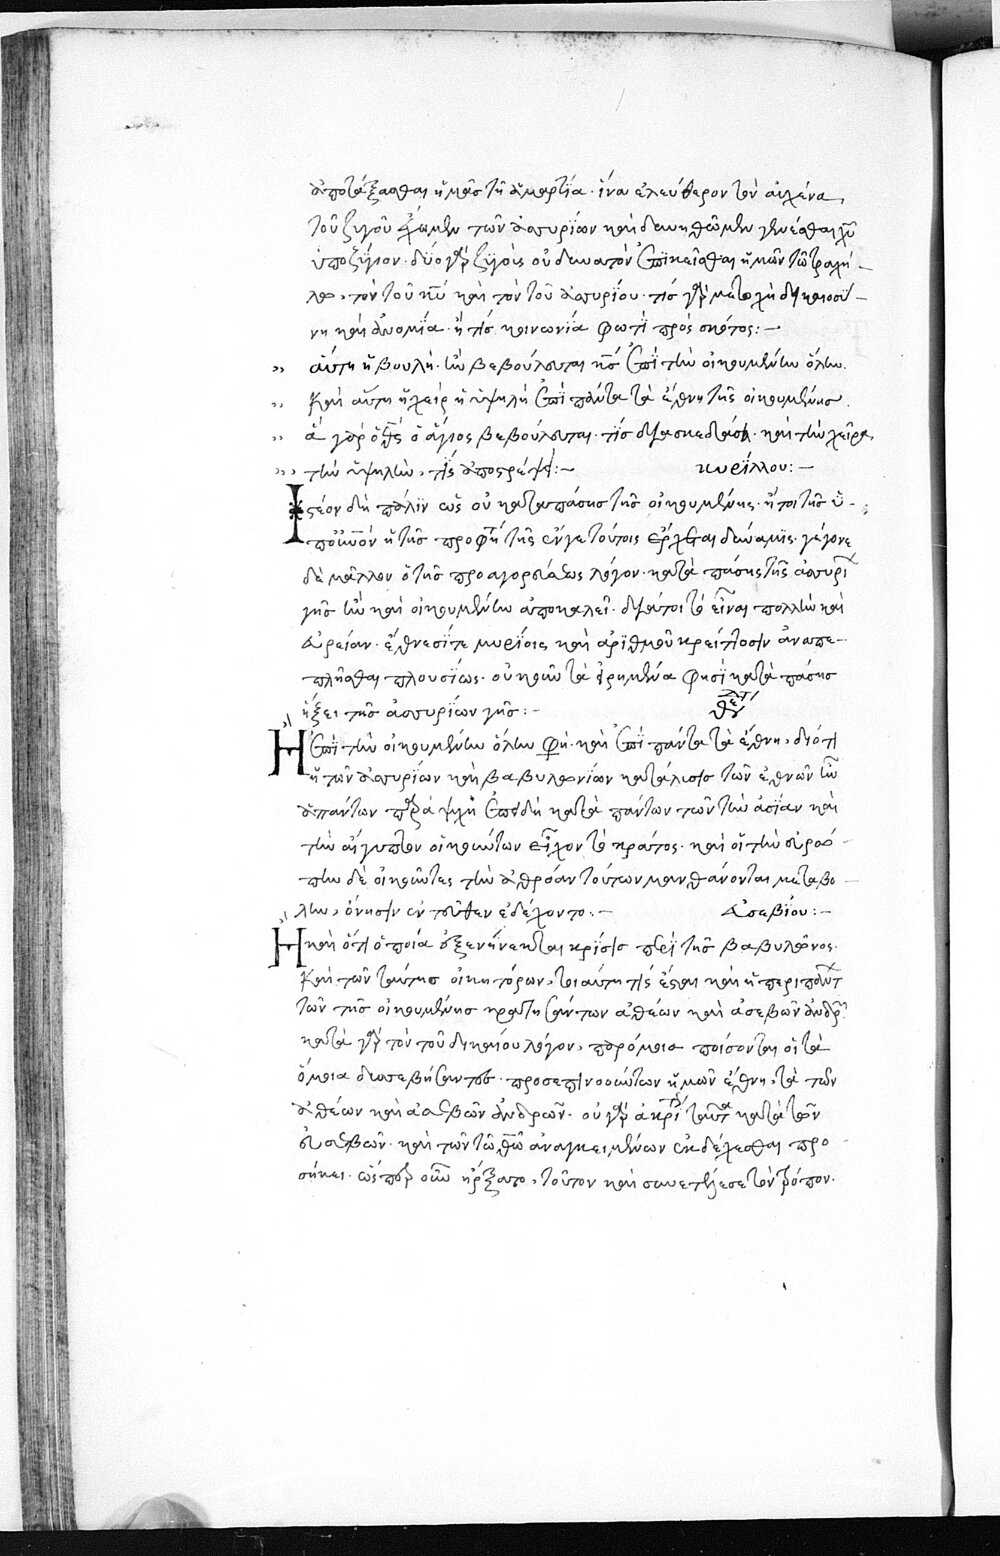 ἀποτάξασθαι ἡμᾶς τῇ ἁμαρτία · ἵνα ἐλεύθερον τὸν αὐχένα
τοῦ ζυγοῦ φέρωμεν τῶν ἀσσυρίων καὶ δυνηθῶμεν γενέσθαι χυ
ὑποζύγιον · δύο γὰρ ζυγοὺς οὐ δυνατὸν ἐπικεῖσθαι ἡμῶν τῷ τραχή-
λω, τὸν τοῦ κυ καὶ τὸν τοῦ ἀσσυρίου · τίς γὰρ μετοχὴ δικαιοσύ-
νη καὶ ἀνομία · ἢ τίς κοινωνία φωτὶ πρὸς σκότος :-
αὕτη ἡ βουλὴ · ἣν βεβούλευται κς ἐπὶ τὴν οἰκουμένην ὅλην ·
Καὶ αὕτη ἡ χεὶρ ἡ ὑψηλὴ ἐπὶ πάντα τὰ ἔθνη τῆς οἰκουμένης ·
ἃ γὰρ ὁ θς ὁ ἅγιος βεβούλευται · τίς διασκεδάσει · καὶ τὴν χεῖρα
τὴν ὑψηλὴν, τίς ἀποστρέψει :- κυρίλλου :-
Ἰστέον δὴ πάλιν ὡς οὐ κατὰ πάσης τῆς οἰκουμένης · ἤτοι τῆς ὑ-
π οὐνὸν ἡ τῆς προφητείας ἐν γε τούτοις ἔρχεται δύναμις · γέγονε
δὲ μᾶλλον ὁ τῆς προαγορεύσεως λόγος · κατὰ πάσης τῆς ἀσσυρί
γῆς ἣν καὶ οἰκουμένην ἀποκαλεῖ · διά τοι τὸ εἶναι πολλὴν καὶ
εὐρεῖαν · ἔθνεσί τε μυρίοις καὶ ἀριθμοῦ κρείττοσιν ἀναπε-
πλῆσθαι πλουσίως · οὐκοῦν τὰ εἰρημένα φησὶ κατὰ πάσης
ἥξει τῆς ἀσσυρίων γῆς :- θεοδ
Ἢ ἐπὶ τὴν οἰκουμένην ὅλην φη · καὶ ἐπὶ πάντα τὰ ἔθνη, διότι
ἡ τῶν ἀσσυρίων καὶ βαβυλωνίων κατάλυσις τῶν ἐθνῶν ἦν
ἁπάντων παραψυχή ἐπειδὴ κατὰ πάντων τῶν τὴν ἀσίαν καὶ
τὴν αἴγυπτον οἰκούντων εἶχον τὸ κράτος · καὶ οἱ τὴν εὐρώ-
πην δὲ οἰκοῦντες τὴν ἀθρόαν τούτων μανθάνοντες μεταβο-
λὴν, ὄνησιν ἐντεῦθεν ἐδέχοντο :- εὐσεβίου :-
Ἢ καὶ ὅτι ὁποία ἐξενήνεκται κρίσις περὶ τῆς βαβυλῶνος ·
Καὶ τῶν ταύτης οἰκητόρων, τοιαύτη τίς ἔσται καὶ ἡ περὶ πάντ
τῶν τῆς οἰκουμένης κρατησάντων ἀθέων καὶ ἀσεβῶν ἀνδρ
κατὰ γὰρ τὸν τοῦ δικαίου λόγον, παρόμοια πείσονται οἱ τὰ
ὅμοια δυσσεβήσαντες · προσεπινοούντων ἡμῶν ἔθνη, τὰ τῶν
ἀθέων καὶ ἀσεβῶν ἀνδρῶν · οὐ γὰρ ταῦτα κατὰ τῶν
εὐσεβῶν · καὶ τῶν τῷ θω ἀνακειμένων ἐκδέχεσθαι προ-
σήκει · ὥσπερ οὖν ἤρξατο, τοῦτον καὶ συνετέλεσε τὸν τρόπον ·